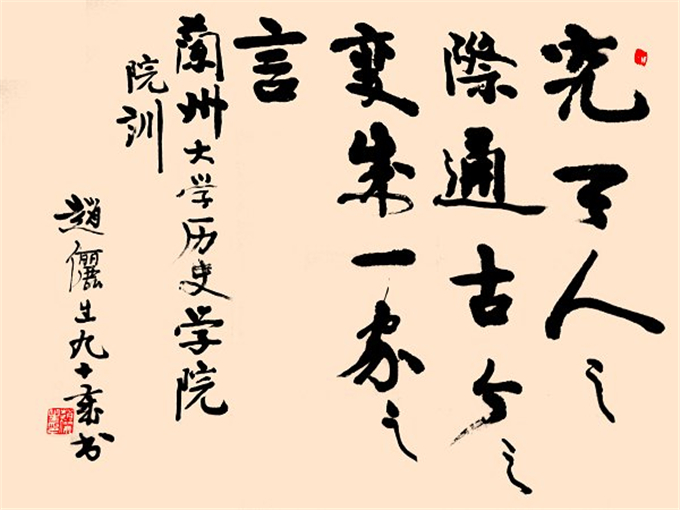 究天人之
際通古今之
變成一家之
言
蘭州大学历史学院
院訓
趙儷生九十歲书